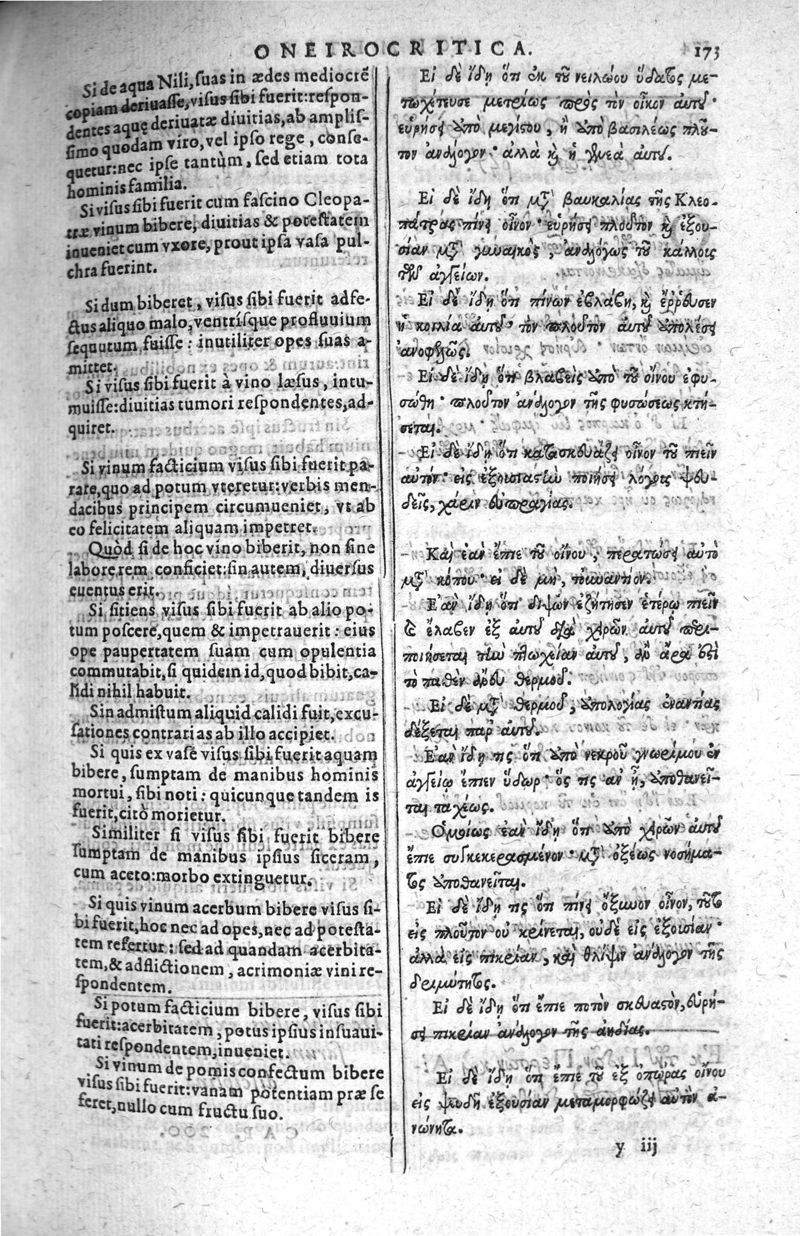 ONEIROCRITICA. 173
Si de aqua Nili, suas in ædes mediocrē
copiam deriuasse, visus sibi fuerit: respon-
dentes aquę deriuatæ diuitias, ab amplis-
simo quodam viro, vel ipso rege, conse-
quetur: nec ipse tantùm, sed etiam tota
hominis familia.
Si visus sibi fuerit cum fascino Cleopa-
træ vinum bibere, diuitias & potestatem
inueniet cum vxore, prout ipsa vasa pul-
chra fuerint.
Si dum biberet, visus sibi fuerit adfe-
ctus aliquo malo, ventrisque profluuium
sequutum fuisse: inutiliter opes suas a-
mittet.
Si visus sibi fuerit à vino læsus, intu-
muisse: diuitias tumori respondentes, ad-
quiret.
Si vinum facticium visus sibi fuerit pa-
rare, quo ad potum vteretur: verbis men-
dacibus principem circumueniet, vt ab
eo felicitatem aliquam impetret.
Quod si de hoc vino biberit, non sine
labore rem conficiet: sin autem, diuersus
euentus erit.
Si sitiens visus sibi fuerit ab alio po-
tum poscere, quem & impetrauerit: eius
ope paupertatem suam cum opulentia
commutabit, si quidem id, quod bibit, ca-
lidi nihil habuit.
Sin admistum aliquid calidi fuit, excu-
sationes contrarias ab illo accipiet.
Si quis ex vase visus sibi fuerit aquam
bibere, sumptam de manibus hominis
mortui, sibi noti: quicunque tandem is
fuerit, citò morietur.
Similiter si visus sibi fuerit bibere
sumptam de manibus ipsius siceram,
cum aceto: morbo extinguetur.
Si quis vinum acerbum bibere visus si-
bi fuerit, hoc nec ad opes, nec ad potesta-
tem refertur: sed ad quandam acerbita-
tem, & adflictionem, acrimoniæ vini re-
spondentem.
Si potum facticium bibere, visus sibi
fuerit: acerbitatem, potus ipsius insuaui-
tati respondentem, inueniet.
Si vinum de pomis confectum bibere
visus sibi fuerit: vanam potentiam præ se
feret, nullo cum fructu suo.
Εἰ δὲ ἴδῃ ὅτι ἐκ τοῦ νειλώου ὕδατος με-
τωχέτευσε μετρίως πρὸς τὸν οἶκον αὐτοῦ·
εὑρήσει ἀπὸ μεγίστου, ἢ ἀπὸ βασιλέως πλοῦ-
τον ἀνάλογον· ἀλλὰ καὶ ἡ γενεὰ αὐτοῦ.
Εἰ δὲ ἴδῃ ὅτι μετὰ βαυκαλίας τῆς Κλεο-
πάτρας πίνει οἶνον· εὑρήσει πλοῦτον καὶ ἐξου-
σίαν μετὰ γυναικὸς, ἀναλόγως τοῦ κάλλους
τῶν ἀγγείων.
Εἰ δὲ ἴδῃ ὅτι πίνων ἐβλάβη, καὶ ἔρρευσεν
ἡ κοιλία αὐτοῦ· τὸν πλοῦτον αὐτοῦ ἀπολέσει
ἀνοφελῶς.
Εἰ δὲ ἴδῃ ὅτι βλαβεὶς ἀπὸ τοῦ οἴνου ἐφυ-
σώθη· πλοῦτον ἀνάλογον τῆς φυσώσεως κτή-
σεται.
Εἰ δὲ ἴδῃ ὅτι κατασκευάζει οἶνον τοῦ πιεῖν
αὐτόν· εἰς ἐξουσιαστὴν ποιήσει λόγους ψευ-
δεῖς, χάριν εὐπραγίας.
Καὶ ἐὰν ἔπιε τοῦ οἴνου, περατώσει αὐτὸ
μετὰ κόπου· εἰ δὲ μὴ, τοὐναντίον.
Ἐὰν ἴδῃ ὅτι διψῶν ἐζήτησεν ἑτέρῳ πιεῖν
καὶ ἔλαβεν ἐξ αὐτοῦ· διὰ χειρῶν αὐτοῦ περι-
ποιήσεται τὴν πτωχείαν αὐτοῦ, εἰ ἄρα ἐστὶ
τὸ ποθὲν ἄνευ θερμοῦ.
Εἰ δὲ μετὰ θερμοῦ, ἀπολογίας ἐναντίας
δέξεται παρ' αὐτοῦ.
Ἐὰν ἴδῃ τις ὅτι ἀπὸ νεκροῦ γνωρίμου ἐν
ἀγγείῳ ἔπιεν ὕδωρ· ὅς τις ἂν ᾖ, ἀποθανεῖ-
ται ταχέως.
Ὁμοίως ἐὰν ἴδῃ ὅτι ἀπὸ χειρῶν αὐτοῦ
ἔπιε συγκεκερασμένον· μετὰ ὀξέως νοσήμα-
τος ἀποθανεῖται.
Εἰ δὲ ἴδῃ τις ὅτι πίνει ὄξινον οἶνον, τοῦτο
εἰς πλοῦτον οὐ κρίνεται, οὐδὲ εἰς ἐξουσίαν·
ἀλλὰ εἰς πικρίαν, καὶ θλίψιν ἀνάλογον τῆς
δριμύτητος.
Εἰ δὲ ἴδῃ ὅτι ἔπιε ποτὸν σκευαστὸν, εὑρή-
σει πικρίαν ἀνάλογον τῆς ἀηδίας.
Εἰ δὲ ἴδῃ ὅτι ἔπιε τοῦ ἐξ ὀπώρας οἴνου
εἰς ψευδῆ ἐξουσίαν μεταμορφώσει αὐτὸν ἀ-
νωνήτα.
y iij